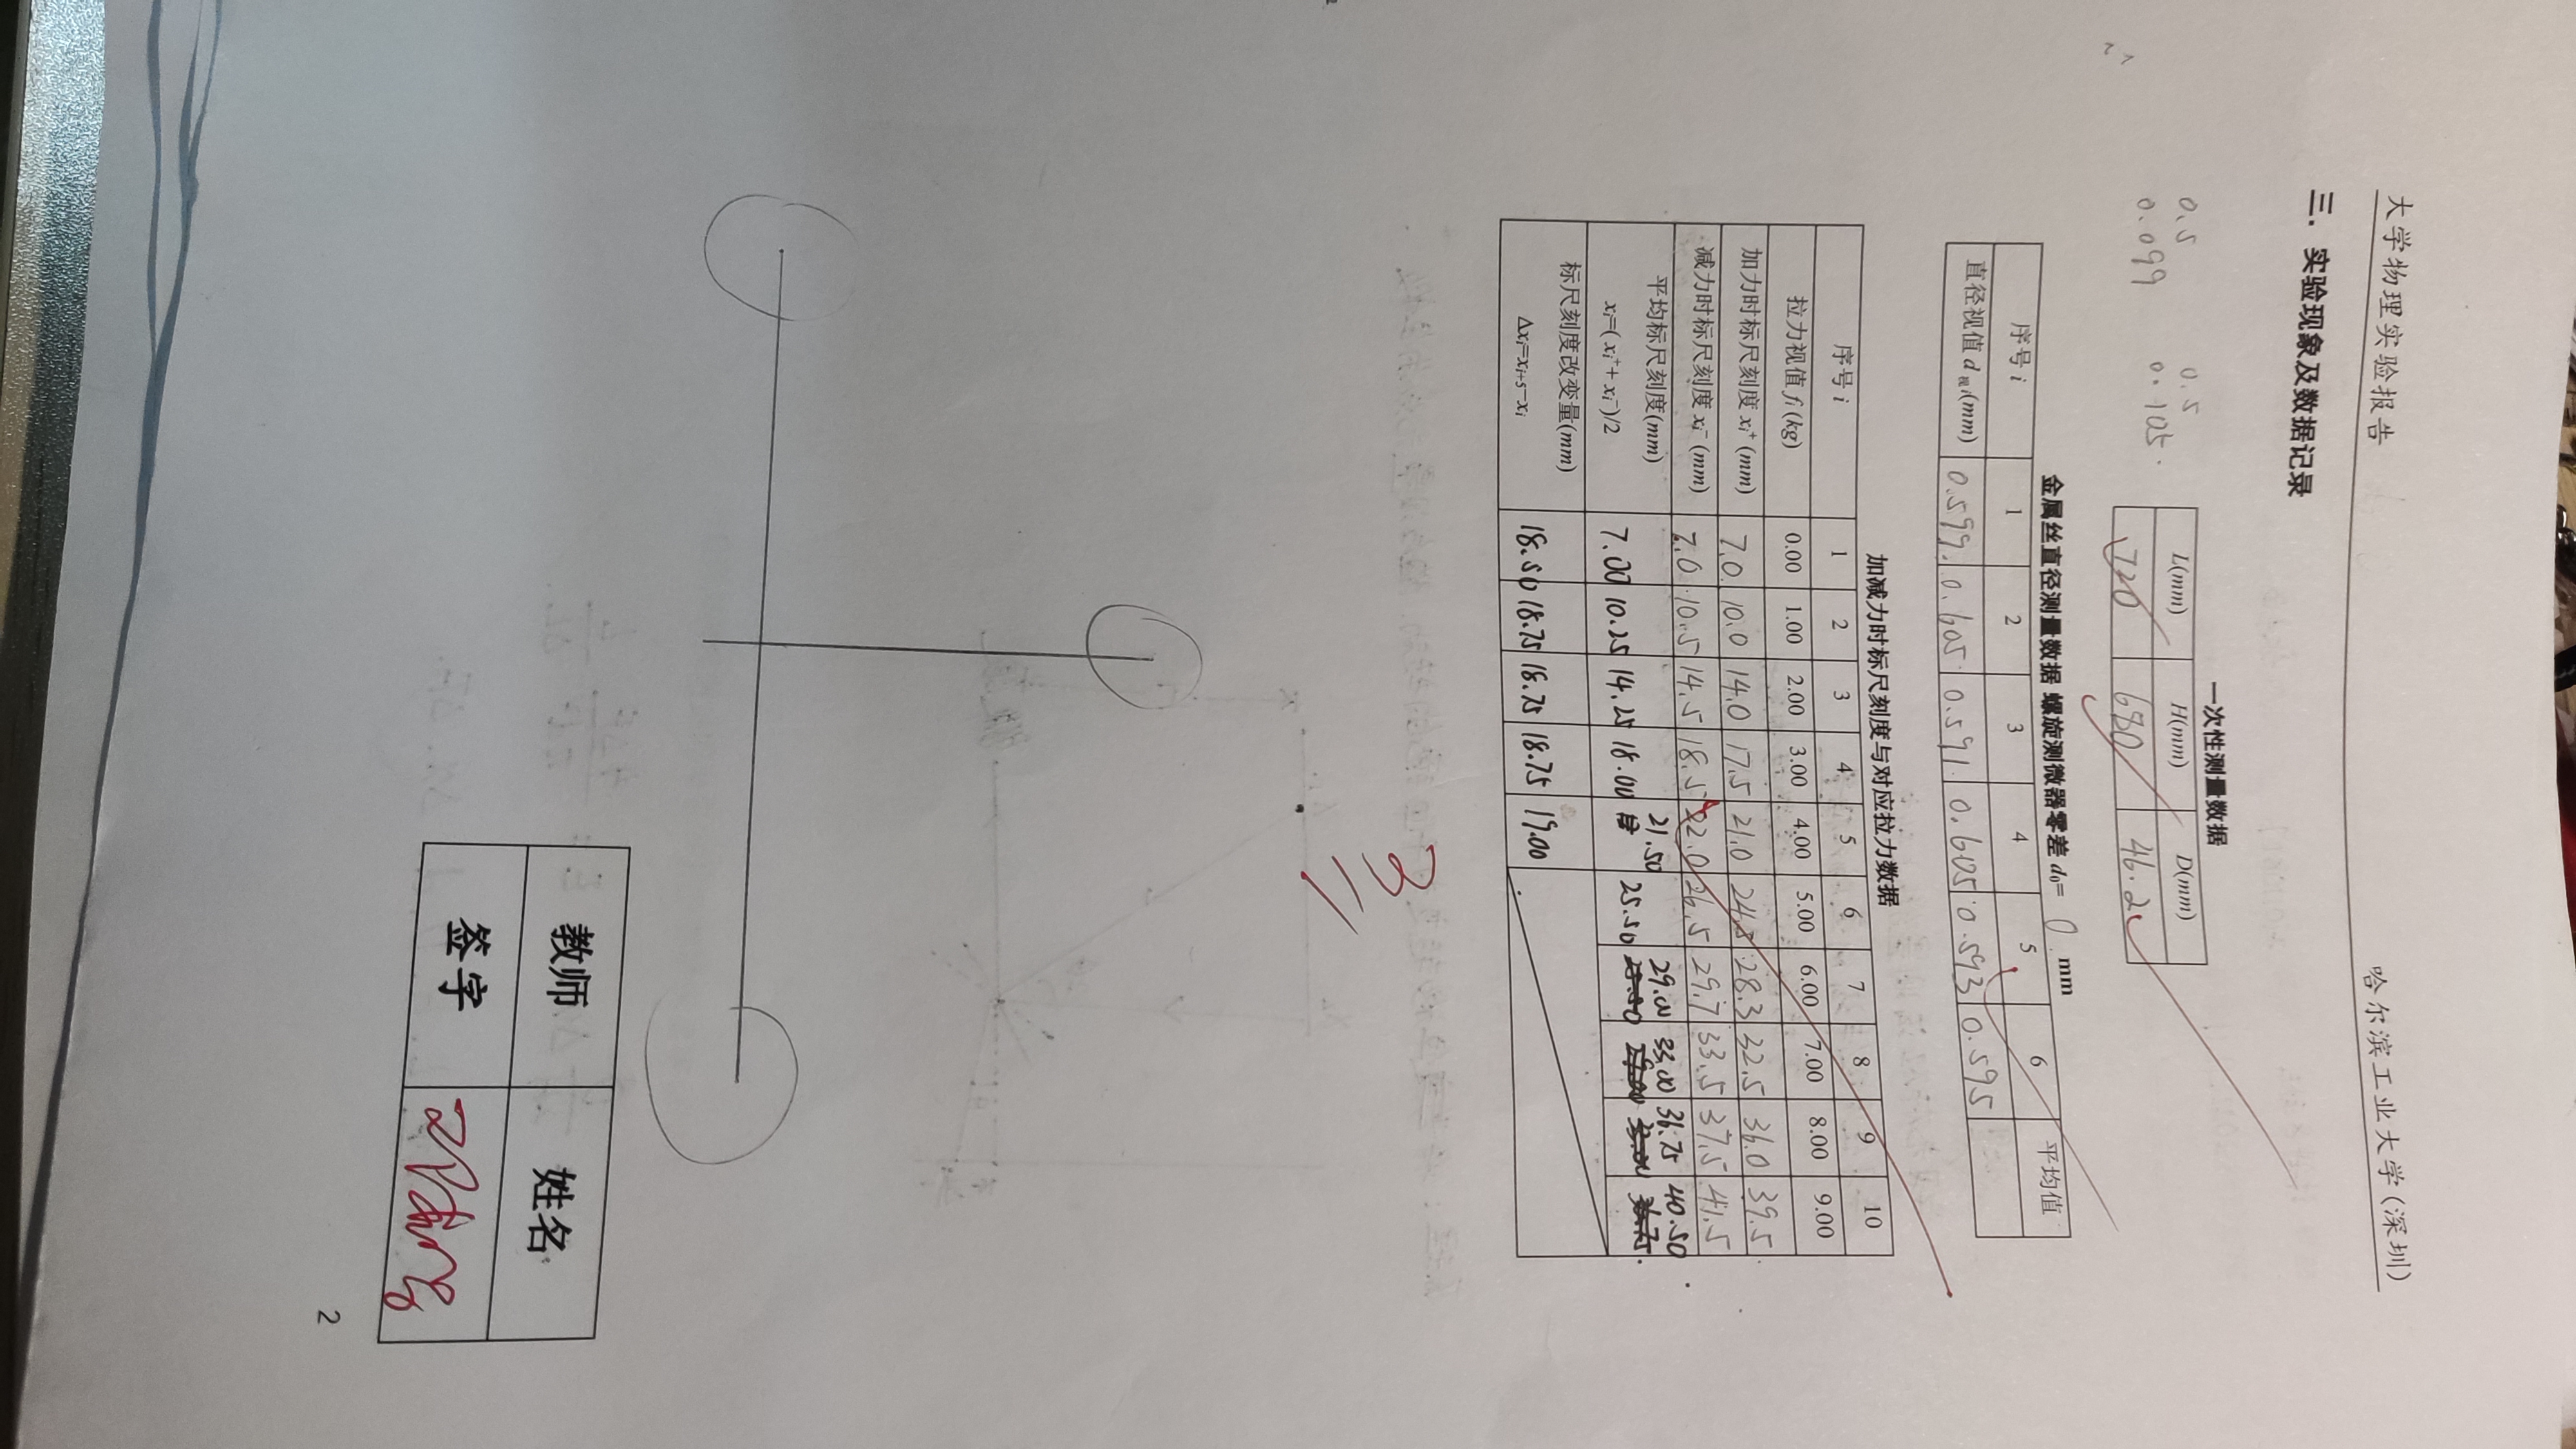 大学物理实验报告 哈尔滨工业大学(深圳)
三. 实验现象及数据记录
一次性测量数据
0.5 0.5
0.099 0.105
L(mm) H(mm) D(mm)
720 680 46.2
金属丝直径测量数据 螺旋测微器零差 d0= 0 mm
序号 i 1 2 3 4 5 6 平均值
直径视值 d视i(mm) 0.599 0.605 0.591 0.605 0.593 0.595
加减力时标尺刻度与对应拉力数据
序号 i 1 2 3 4 5 6 7 8 9 10
拉力视值 fi (kg) 0.00 1.00 2.00 3.00 4.00 5.00 6.00 7.00 8.00 9.00
加力时标尺刻度 xi+ (mm) 7.0 10.0 14.0 17.5 21.0 28.3 32.5 36.0 39.5
减力时标尺刻度 xi− (mm) 7.0 10.5 14.5 18.5 22.0 26.5 29.7 33.5 37.5 41.5
平均标尺刻度(mm) 21.50 29.00 33.00 36.75 40.50
xi=( xi++ xi−)/2 7.00 10.25 14.25 18.00 25.50 25.50 29.00 33.00 36.75
标尺刻度改变量(mm)
Δxi=xi+5−xi 18.50 18.75 18.75 18.75 19.00
3
教师 姓名
签字
2